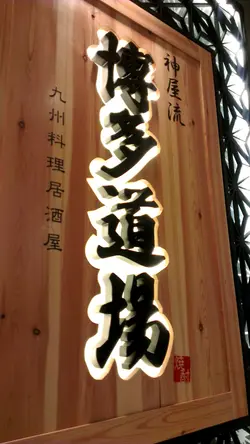 神屋流
博多道場
九州料理居酒屋